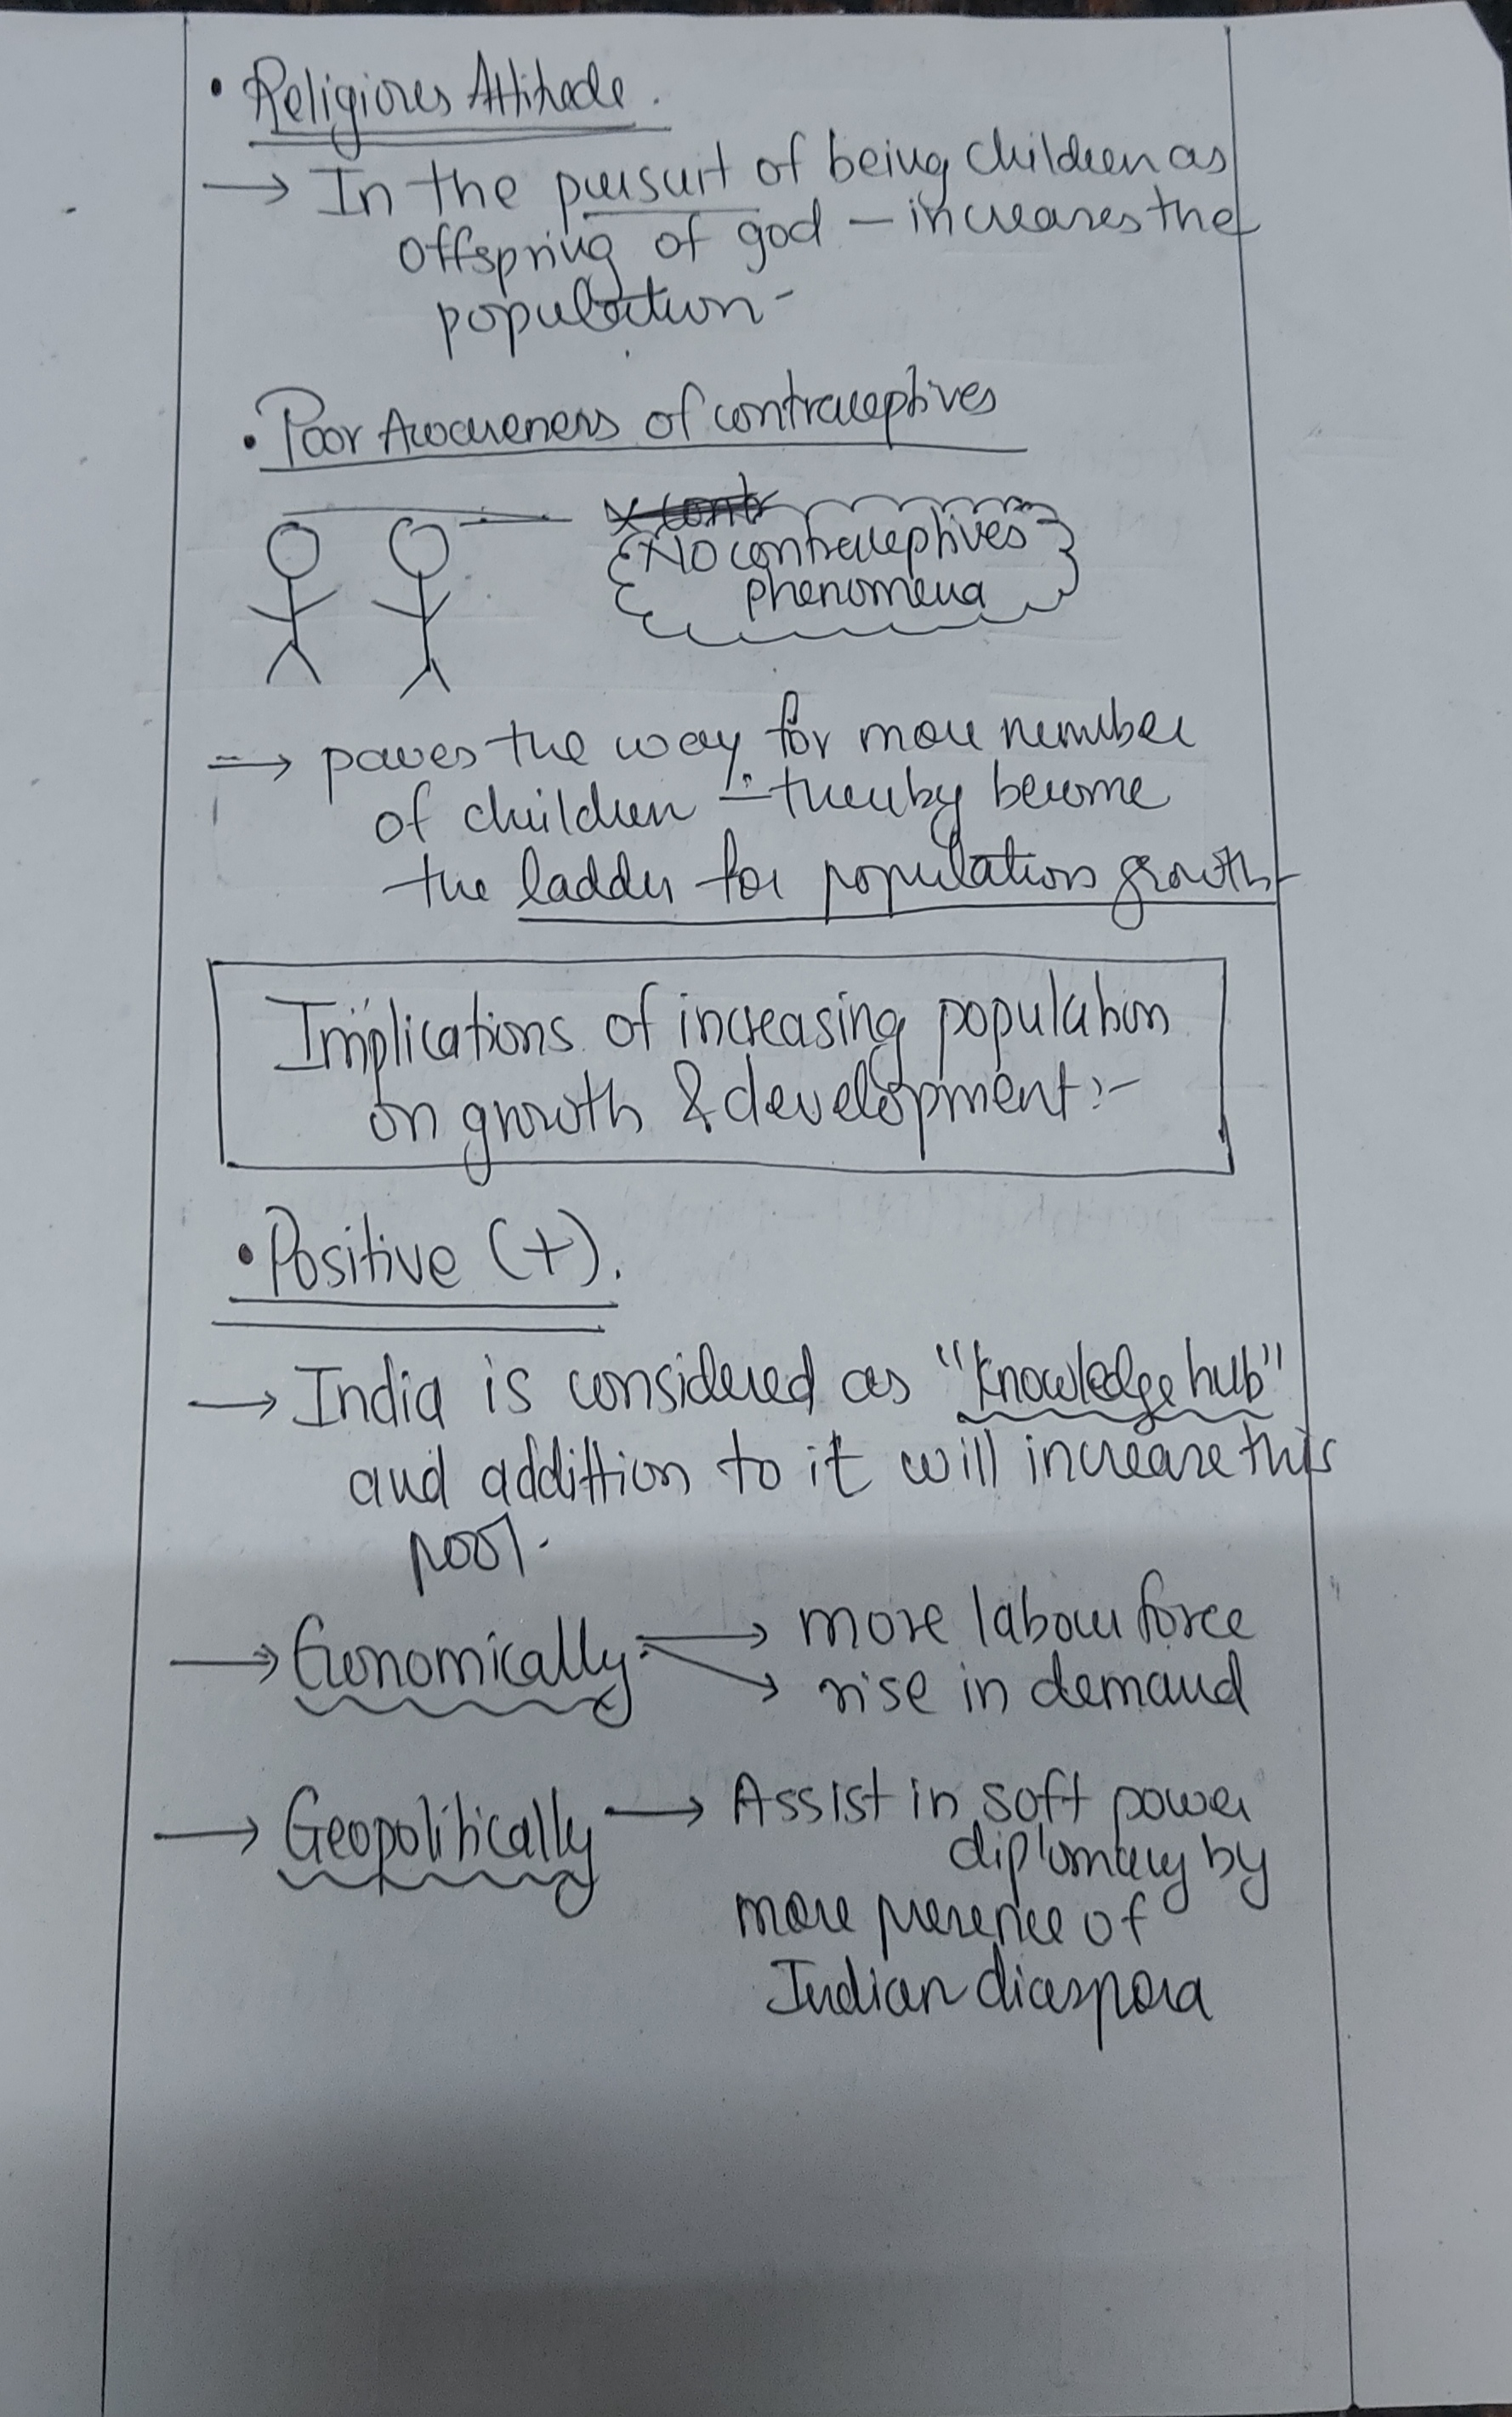 • Religious Attitude.
→ In the pursuit of being children as
offspring of god – increases the
population-
• Poor Awareness of contraceptives
No contraceptives
phenomena
→ paves the way for more number
of children – thereby become
the ladder for population growth-
Implications of increasing population
on growth & development:-
• Positive (+).
→ India is considered as "knowledge hub"
and addittion to it will increase this
pool.
→ Economically → more labour force
→ rise in demand
→ Geopolitically → Assist in soft power
diplomacy by
more presence of
Indian diaspora